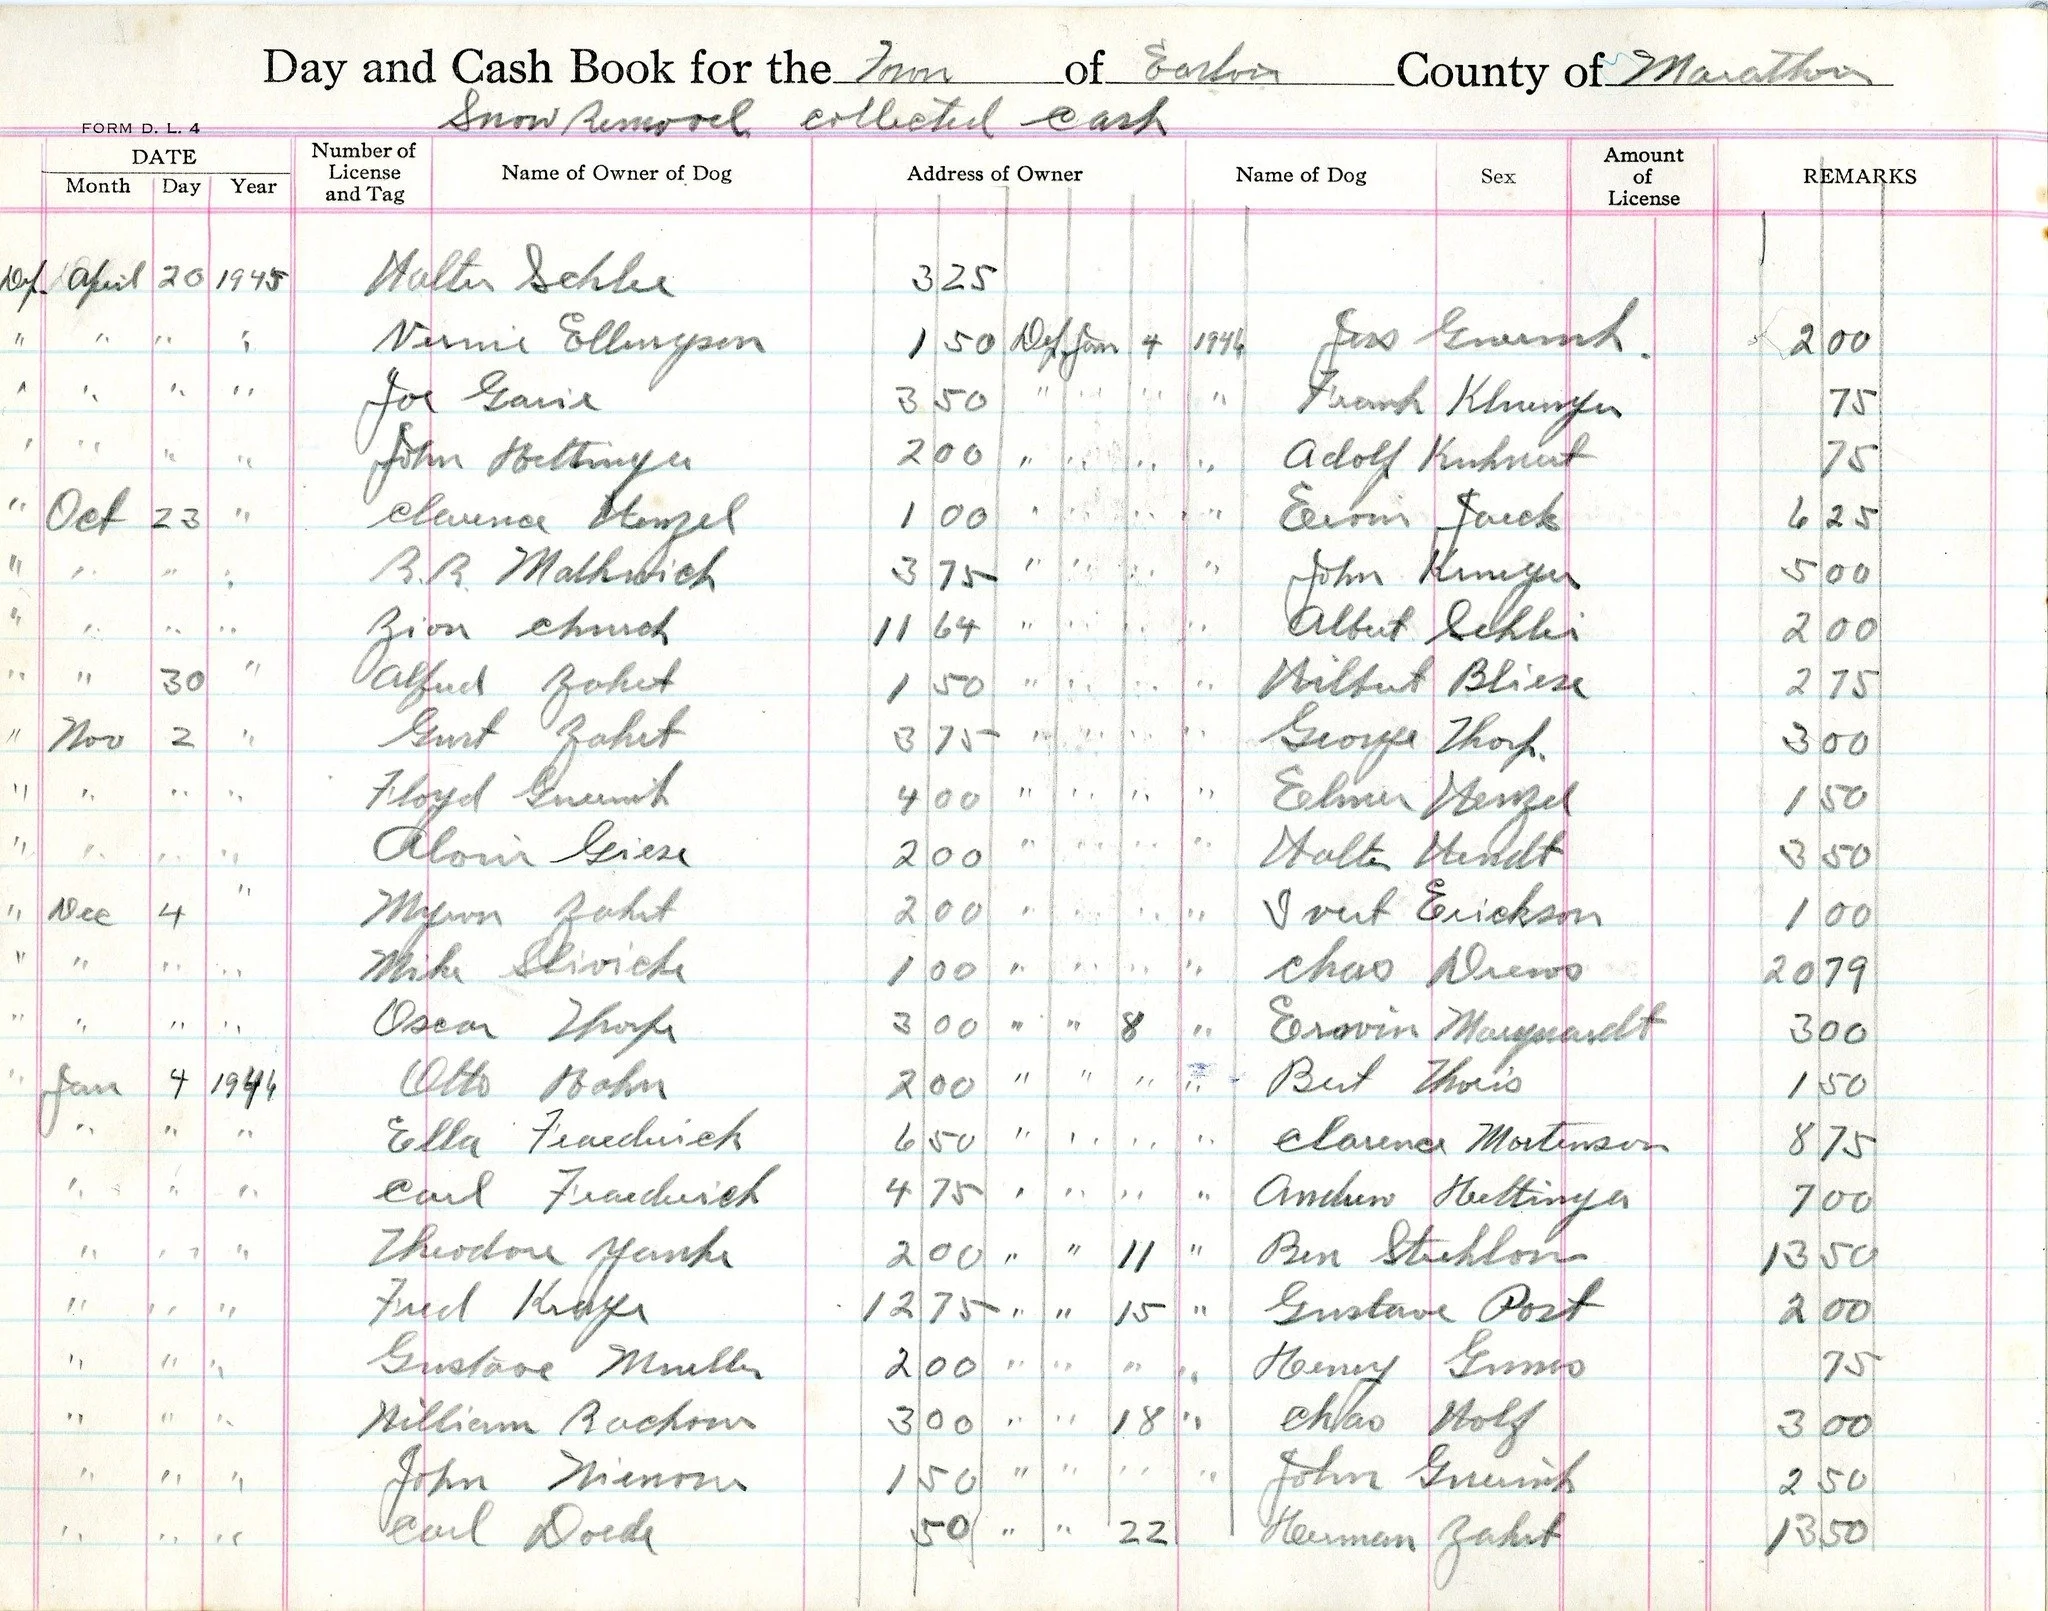 Day and Cash Book for the Town of Easton County of Marathon
Snow Removel collected cash
FORM D. L. 4
DATE Number of License and Tag Name of Owner of Dog Address of Owner Name of Dog Sex Amount of License REMARKS
Month Day Year
Dep. April 20 1945 Walter Schlei 3 25
" " " " Vernie Ellingson 1 50 Dep. Jan 4 1946 Jess Guerink. 2 00
" " " " Joe Garie 3 50 " " " " Frank Kluenger 75
" " " " John Hettinger 2 00 " " " " Adolf Kuhnert 75
" Oct 23 " Clarence Wenzel 1 00 " " " " Erwin Jaeck 6 25
" " " " R.R. Mathwich 3 75 " " " " John Krueger 5 00
" " " " Zion church 11 64 " " " " Albert Schlei 2 00
" " 30 " Alfred Zahrt 1 50 " " " " Wilbert Bliese 2 75
" Nov 2 " Gust Zahrt 3 75 " " " " George Thorp. 3 00
" " " " Floyd Guerink 4 00 " " " " Elmer Wenzel 1 50
" " " " Alvin Giese 2 00 " " " " Walter Wendt 3 50
" Dec 4 " Myron Zahrt 2 00 " " " " Ivert Erickson 1 00
" " " " Mike Slivicke 1 00 " " " " Chas Drews 20 79
" " " " Oscar Thorpe 3 00 " " 8 " Erwin Marquardt 3 00
" Jan 4 1946 Otto Hahn 2 00 " " " " Bert Theis 1 50
" " " Ella Fraedrick 6 50 " " " " Clarence Mortenson 8 75
" " " Carl Fraedrich 4 75 " " " " Andrew Hettinger 7 00
" " " Theodore Yanke 2 00 " " 11 " Ben Strehlow 13 50
" " " Fred 12 75 " " 15 " Gustave Post 2 00
" " " Gustave Mueller 2 00 " " " " Henry 75
" " " William Rachow 3 00 " " 18 " Chas Wolf 3 00
" " " John Nienow 1 50 " " " " John Guerink 2 50
" " " Carl Doede 50 " " 22 Herman Zahrt 13 50